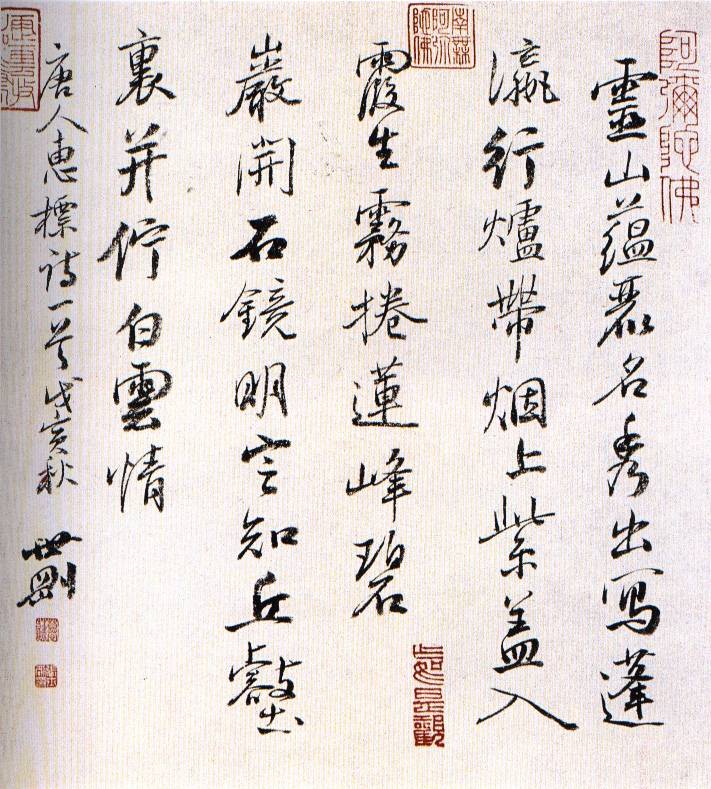 阿彌陀佛
靈山蘊麗名秀出寫蓬
瀛行爐帶烟上紫蓋入
南無阿弥陀佛
霞生霧捲蓮峰碧
如是觀
巖開石鏡明定知丘壑
裏并佇白雲情
唐人惠標詩一首戊亥秋
世剛